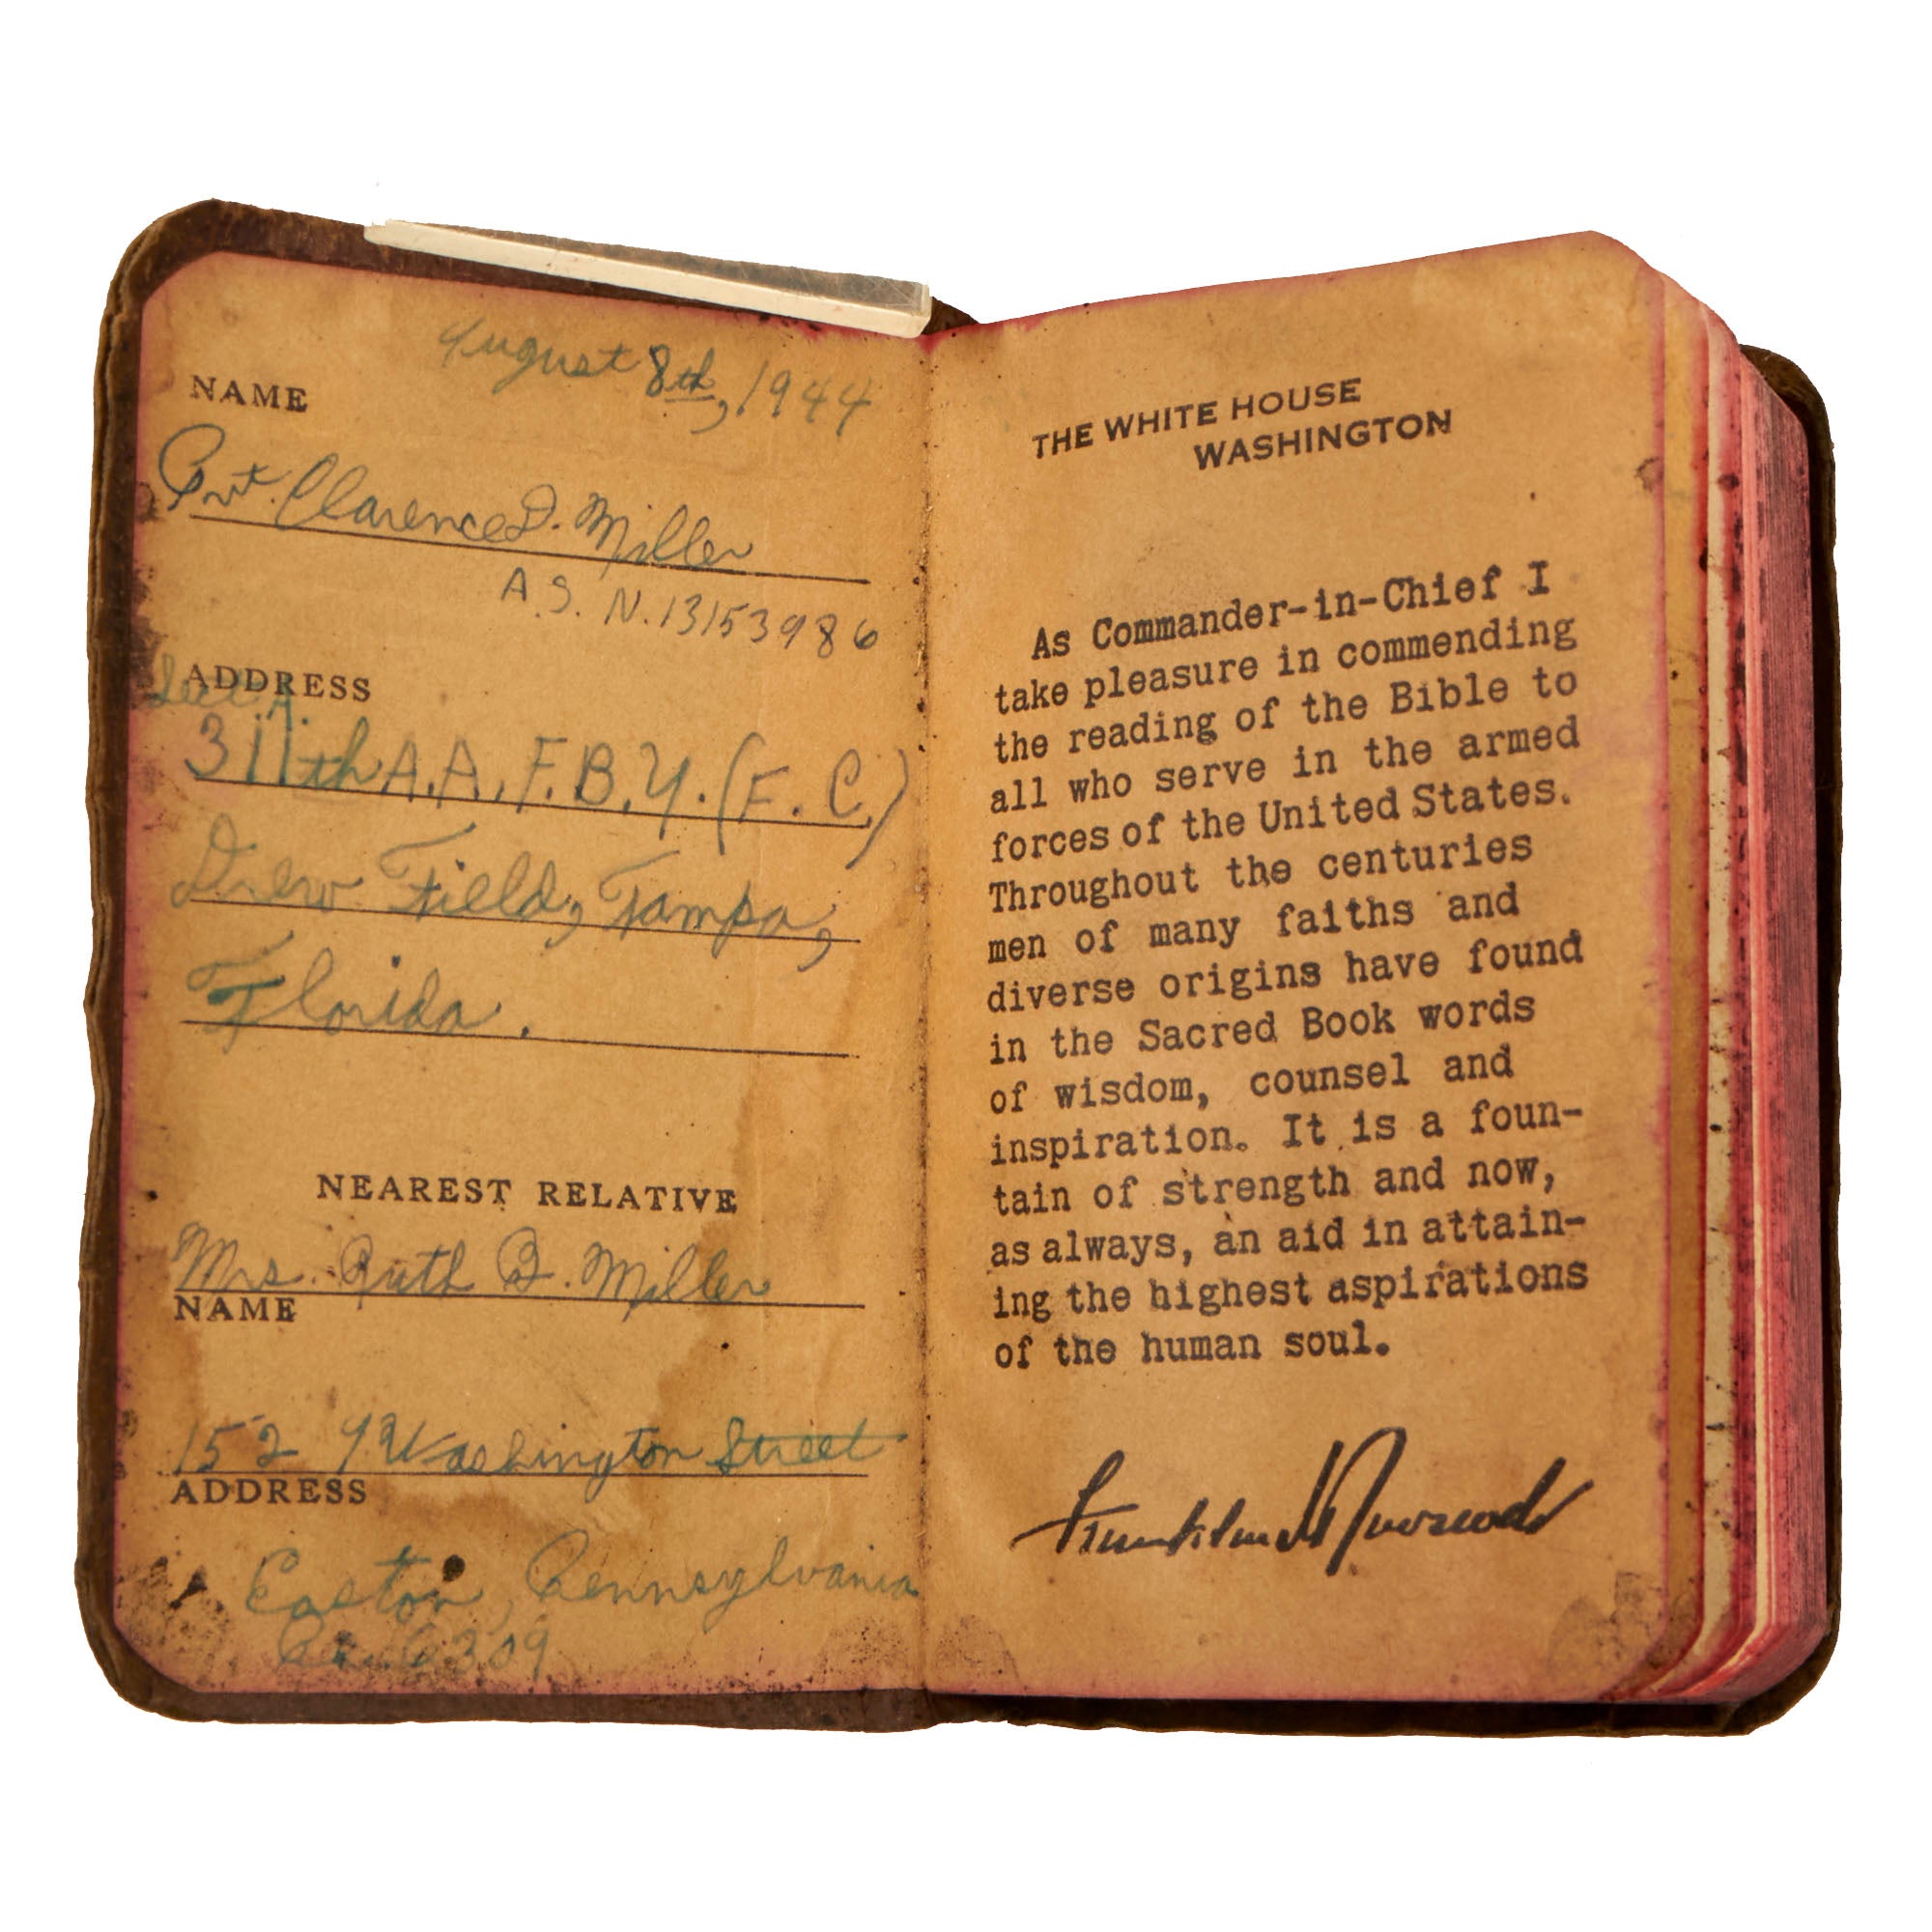 August 8th, 1944
NAME
Pvt. Clarence D. Miller
A.S.N. 13153986
ADDRESS
Sec. A.
311th A.A.F.B.U. (F.C.)
Drew Field, Tampa,
Florida.
NEAREST RELATIVE
Mrs. Ruth B. Miller
NAME
152 Washington Street
ADDRESS
Easton, Pennsylvania
6309
THE WHITE HOUSE
WASHINGTON
As Commander-in-Chief I
take pleasure in commending
the reading of the Bible to
all who serve in the armed
forces of the United States.
Throughout the centuries
men of many faiths and
diverse origins have found
in the Sacred Book words
of wisdom, counsel and
inspiration. It is a foun-
tain of strength and now,
as always, an aid in attain-
ing the highest aspirations
of the human soul.
Franklin D Roosevelt